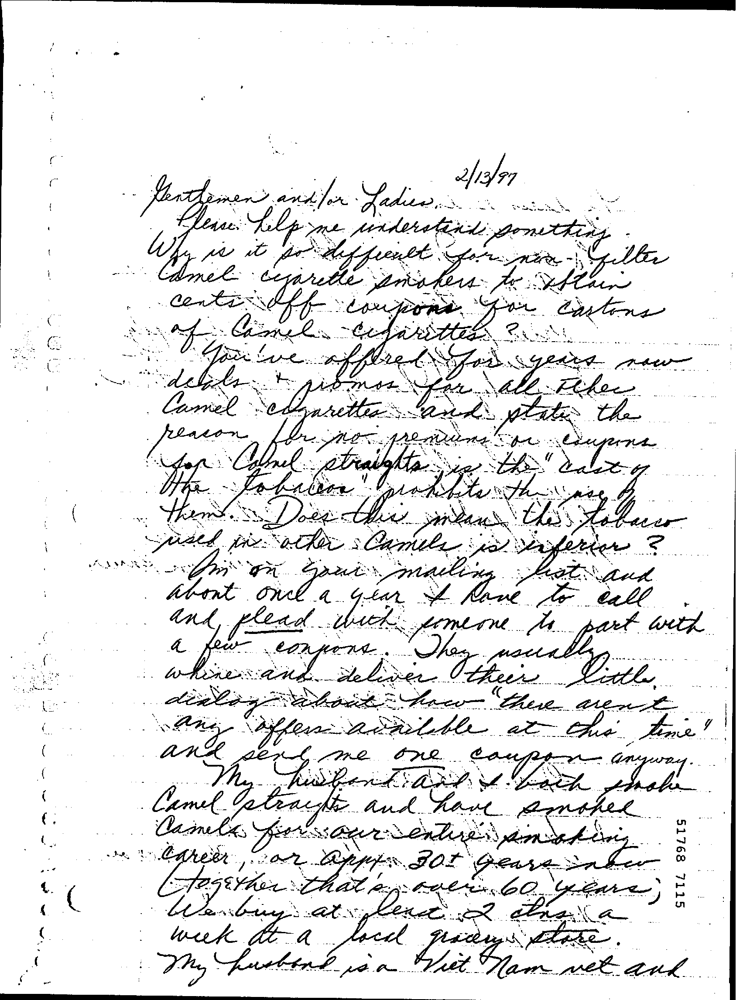 2/13/97
Gentlemen and/or Ladies,
Please help me understand something.
Why is it so difficult for non-filter
Camel cigarette smokers to obtain
cents off coupons for cartons
of Camel cigarettes?
You've offered for years now
deals + promos for all other
Camel cigarettes and state the
reason for no premiums or coupons
for Camel straights is the "cost of
the tobaccos" prohibits the use of
them. Does this mean the tobacco
used in other Camels is inferior?
I'm on your mailing list and
about once a year I have to call
and plead with someone to part with
a few coupons. They usually
whine and deliver their little
dialog about how "there aren't
any offers available at this time"
and send me one coupon anyway.
My husband and I both smoke
Camel straights and have smoked
Camels for our entire smoking
career, or appx. 30+ years now
(together that's over 60 years)
We buy at least 2 ctns a
week at a local grocery store.
My husband is a Viet Nam vet and
51768 7115